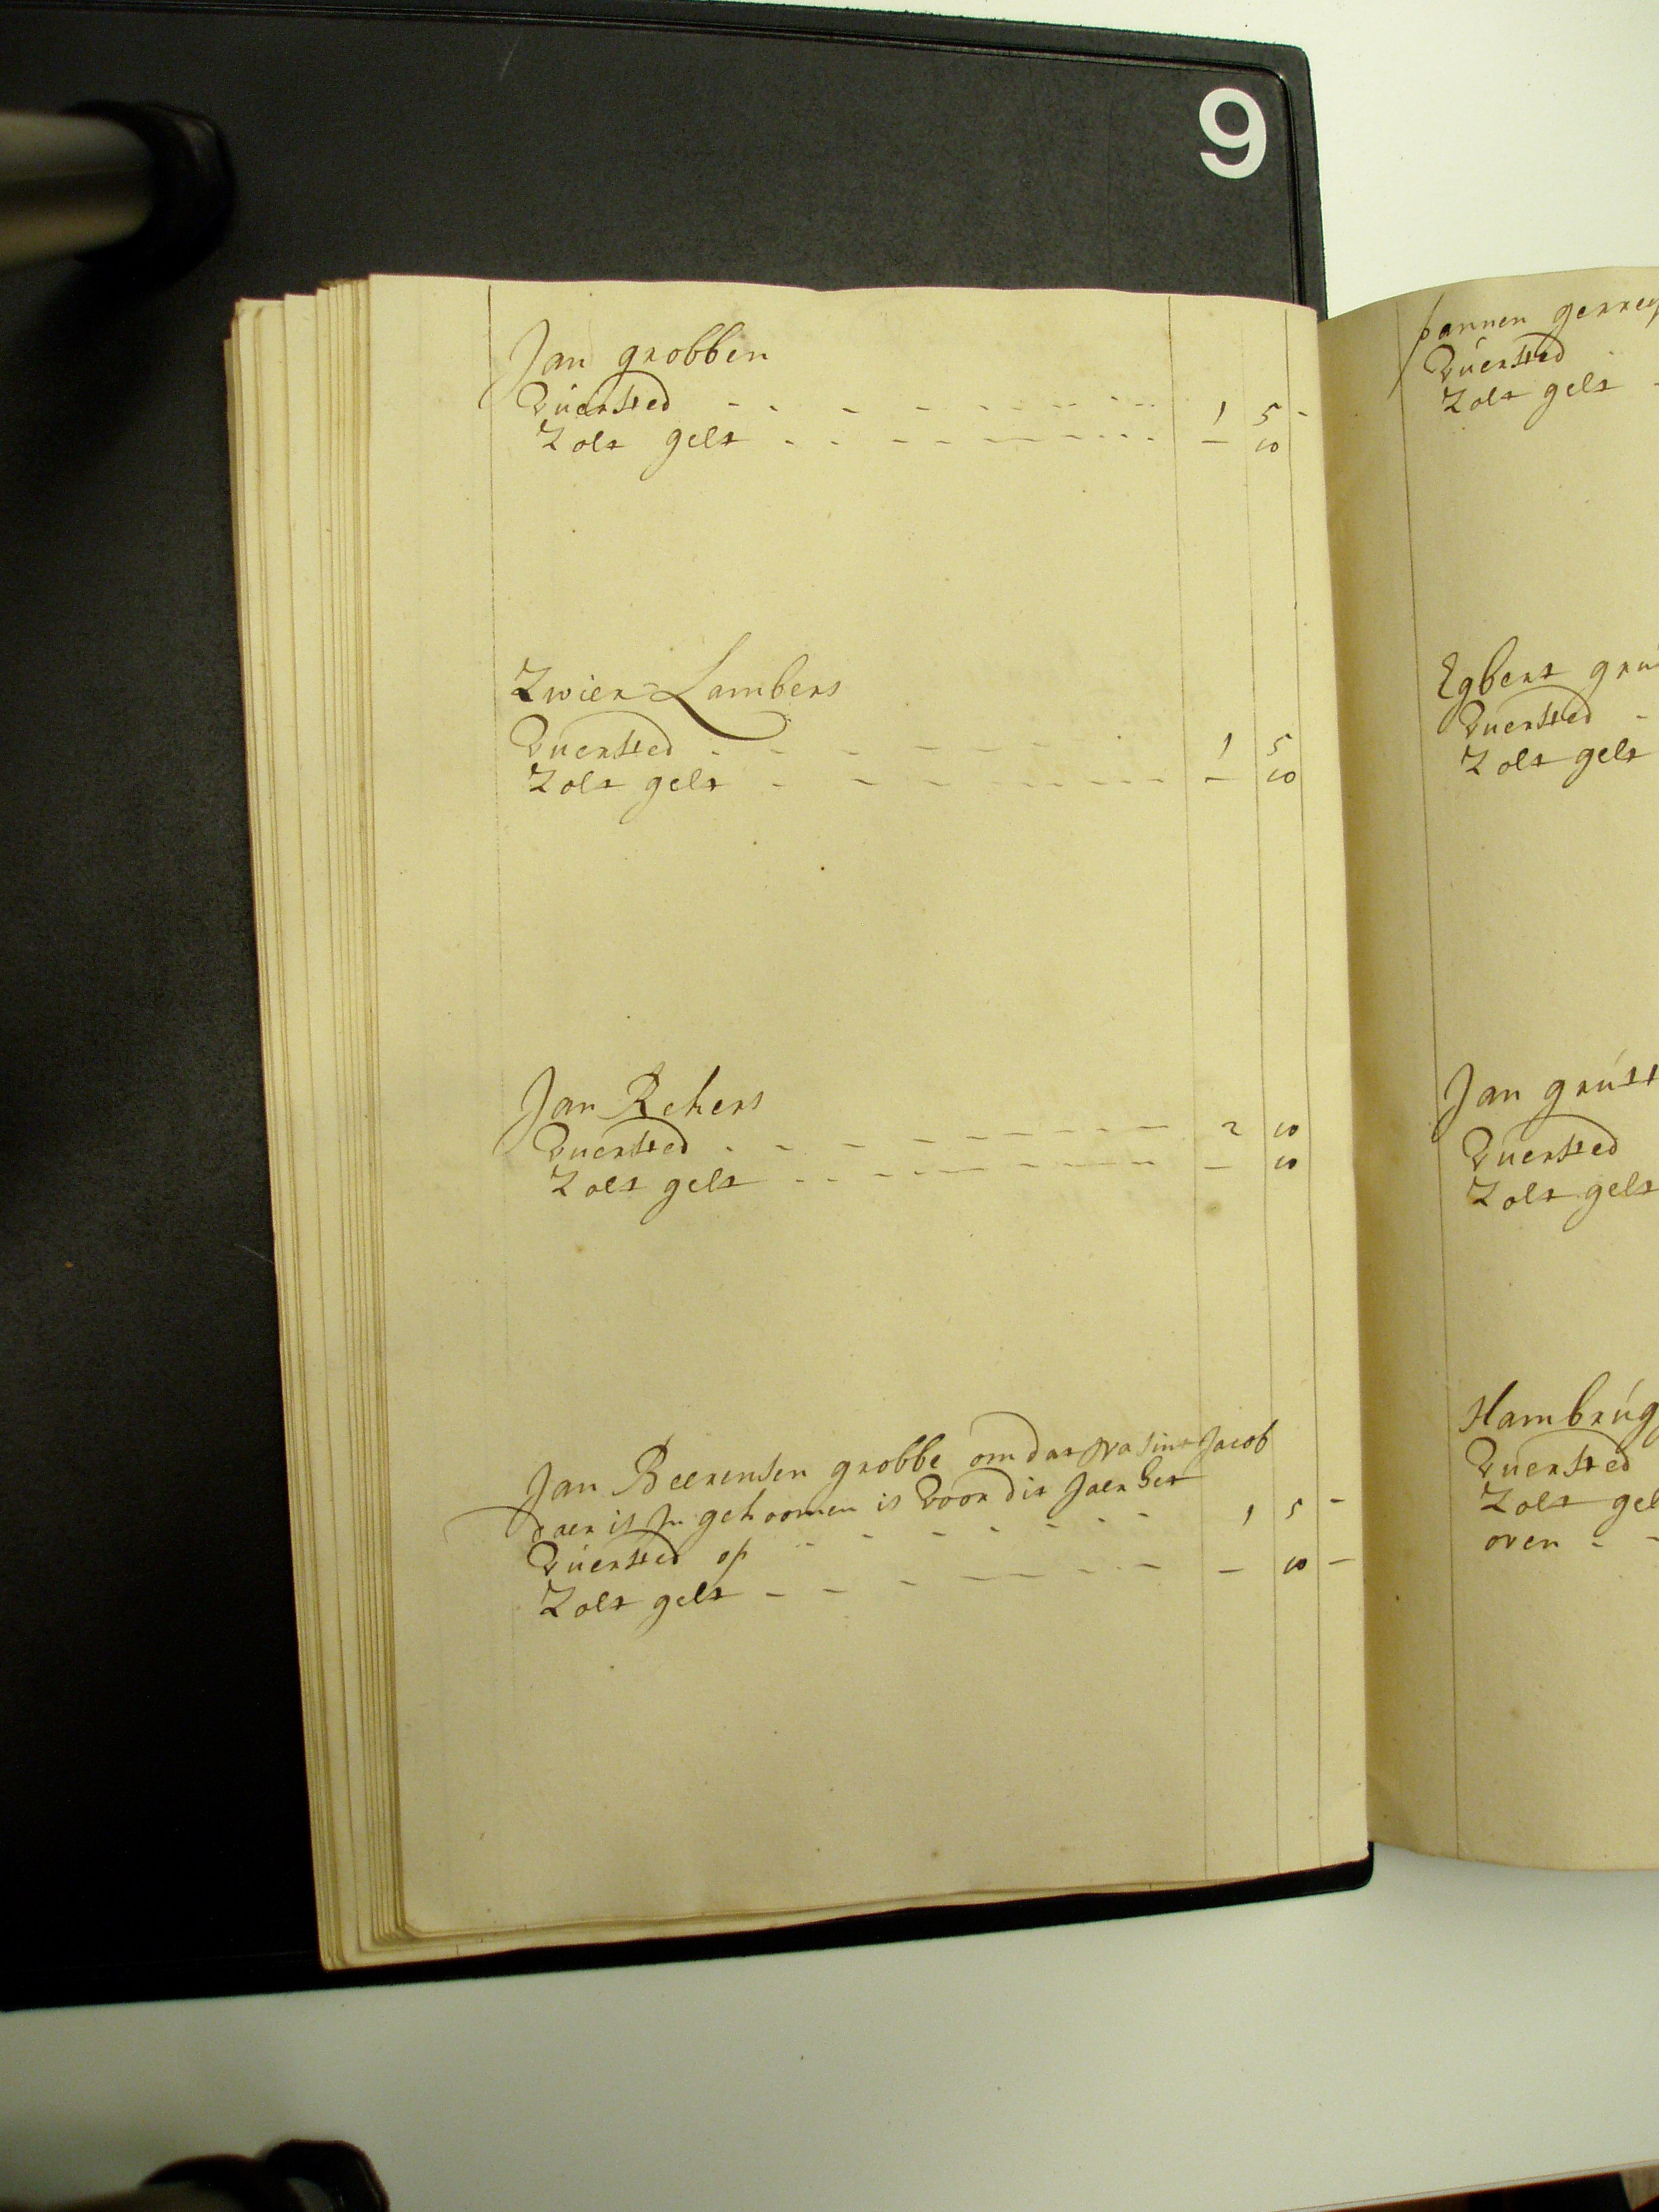 9
Jan grobben
Vúersted - - - - - - - - - 1 5 -
Zolt gelt - - - - - - - - - — 10
Zwier Lambers
Vuersted - - - - - - 1 5
Zolt gelt - - - - - - - - — 10
Jan Rekers
Vuersted - - - - - - - - - 2 10
Zolt gelt - - - - - - - - — 10
Jan Beerensen grobbe omdat na sint Jacob
daer is in gekoomen is voor dit Jaer het
Vúersted op - - - - - - - 1 5 -
Zolt gelt - - - - - - - - — 10 —
Vúersted
Zolt gelt -
Egbert grú
Vuersted -
Zolt gelt
Jan grútt
Vúersted
Zolt gelt
Hambrúg
Vuersted
Zolt gel
oven - -